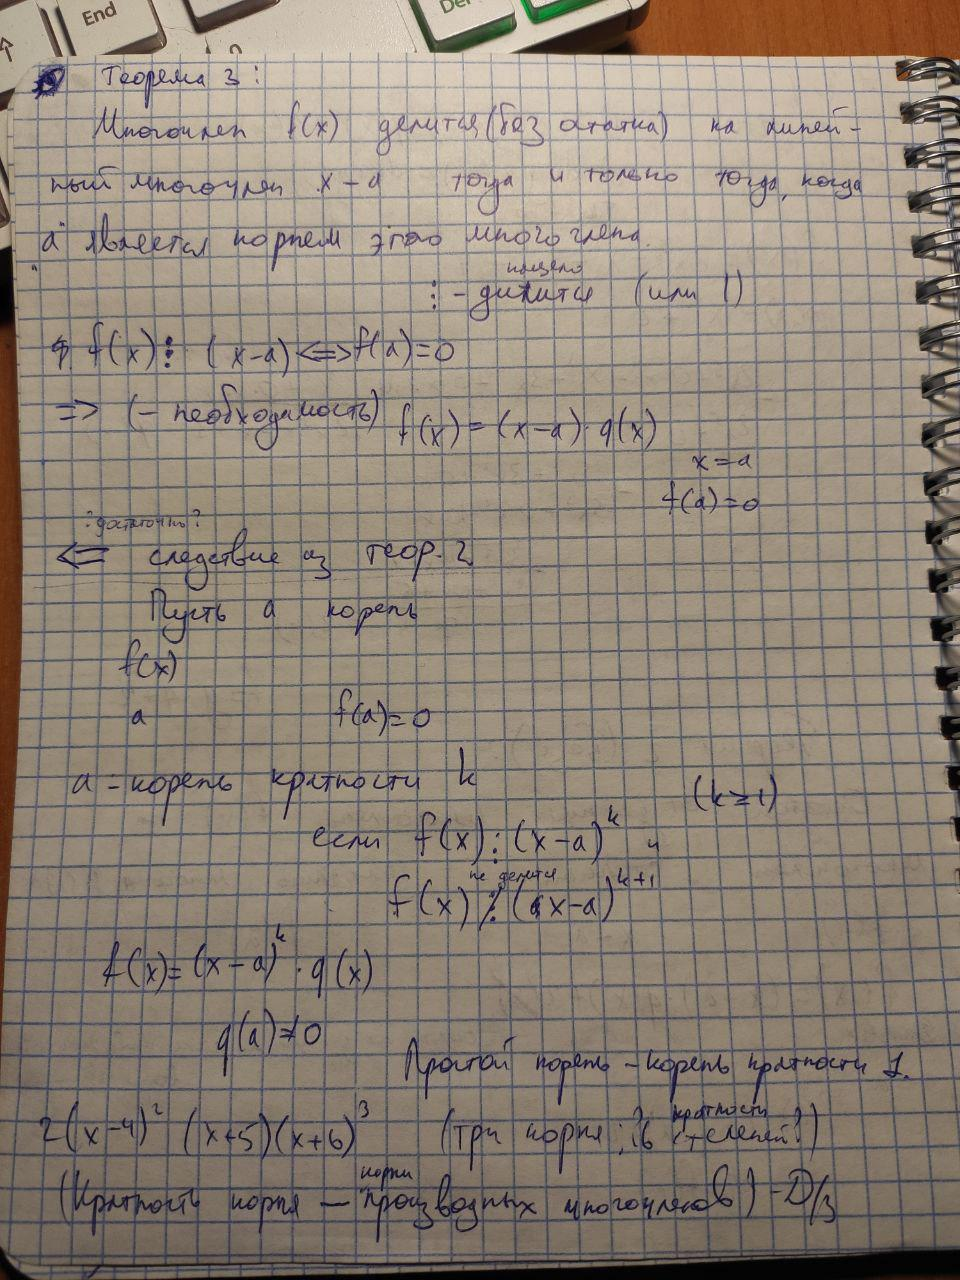 End
Del
Теорема 3:
Многочлен f(x) делится (без статка) на линей-
ный многочлен x-a тогда и только тогда, когда
"a" является корнем этого многочлена.
нацело
⋮ - делится (или |)
f(x) ⋮ (x-a) <=> f(a)=0
=> (- необходимость) f(x) = (x-a)·q(x)
x=a
f(a)=0
?достаточно?
<= следствие из теор. 2
Пусть a корень
f(x)
a f(a)=0
a - корень кратности k (k≥1)
если f(x) ⋮ (x-a)^k и
не делится
f(x) ⋮̸ (x-a)^{k+1}
f(x) = (x-a)^k · q(x)
q(a)≠0
Простой корень - корень кратности 1.
2(x-4)^2 (x+5)(x+6)^3 (три корня; ?6 степеней?)
кратности
корни
(Кратность корня — производных многочленов) - D/з